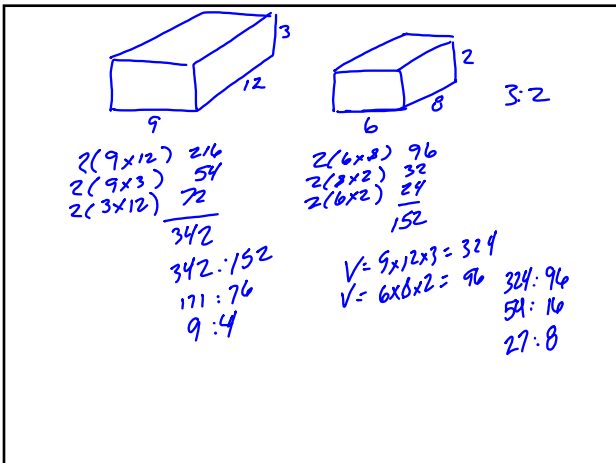 3
12
9
2
8
6
3:2
2(9×12) 216
2(9×3) 54
2(3×12) 72
342
342:152
171:76
9:4
2(6×8) 96
2(8×2) 32
2(6×2) 24
152
V= 9×12×3= 324
V= 6×8×2= 96
324:96
54:16
27:8